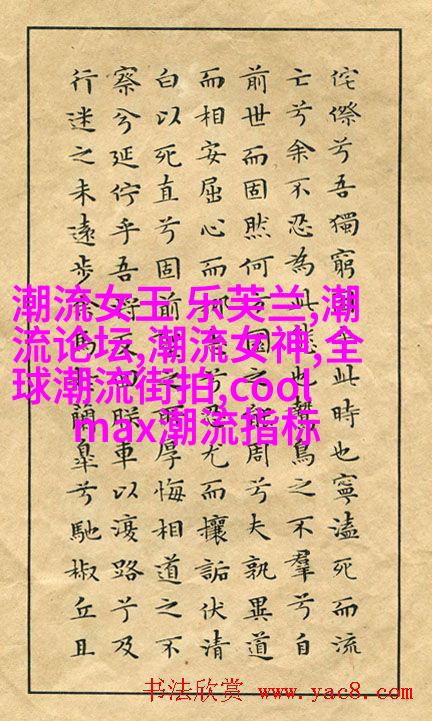 侘傺兮吾獨窮乎此時也寧溘死而流
亡兮余不忍為此態也鷙鳥之不羣兮自
前世而固然何方圜之能周兮夫孰異道
而相安屈心而抑兮忍尤而攘詬伏清
白以死直兮固前之所厚悔相道之不
察兮延佇乎吾將反朕車以復路兮及
行迷之未遠步余馬於蘭皋兮馳椒丘且
潮流女王,乐芙兰,潮
流论坛,潮流女神,全
球潮流街拍,cool
max潮流指标
书法欣赏 www.yac8.com